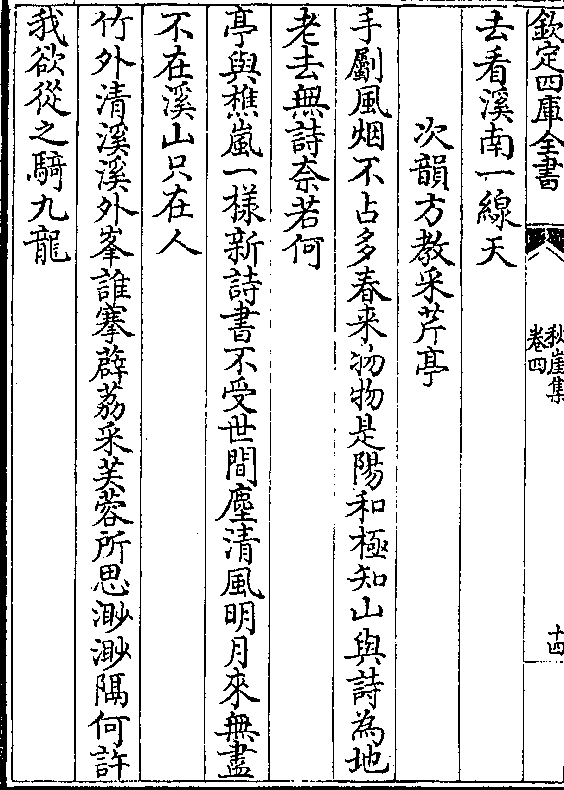 欽定四庫全書
秋崖集
卷四
十四
去看溪南一線天
次韻方教采芹亭
手劚風烟不占多春来物物是陽和極知山與詩為地
老去無詩奈若何
亭與樵嵐一樣新詩書不受世間塵清風明月來無盡
不在溪山只在人
竹外清溪溪外峯誰搴薜荔采芙蓉所思渺渺隅何許
我欲從之騎九龍